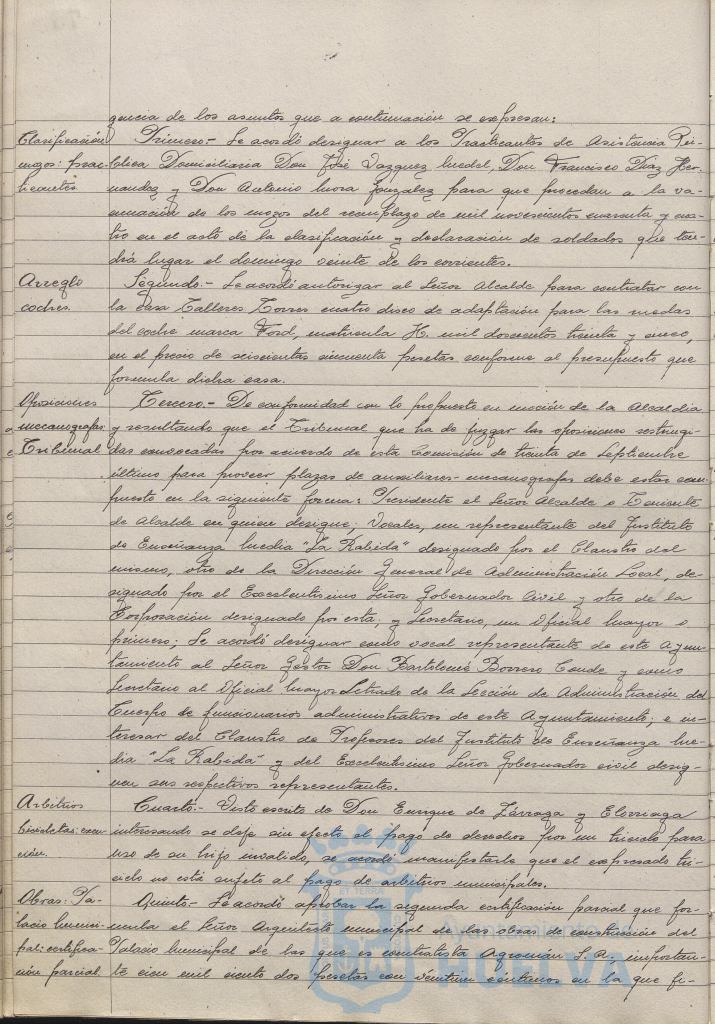 gencia de los asuntos que a continuación se expresan:
Clasificación
mozos: prac-
ticantes
Primero.- Se acordó designar a los Practicantes de Asistencia Pú-
blica Domiciliaria Don José Vazquez Medel, Don Francisco Díaz Her-
nandez y Don Antonio Mora Gonzalez para que procedan a la
de los mozos del reemplazo de mil novecientos cuarenta y cua-
tro en el acto de la clasificación y declaración de soldados que ten-
drá lugar el domingo veinte de los corrientes.
Arreglo
coches.
Segundo.- Se acordó autorizar al Señor Alcalde para contratar con
la casa Talleres Torres cuatro discos de adaptación para las ruedas
del coche marca Ford, matricula H. mil doscientos treinta y cinco,
en el precio de seiscientas cincuenta pesetas conforme al presupuesto que
formula dicha casa.
Oposiciones
mecanografas
Tribunal
Tercero.- De conformidad con lo propuesto en moción de la Alcaldia
y resultando que el Tribunal que ha de juzgar las oposiciones restringi-
das convocadas por acuerdo de esta Comisión de treinta de Septiembre
último para proveer plazas de auxiliares-mecanografas debe estar com-
puesto en la siguiente forma: Presidente el Señor Alcalde o Teniente
de Alcalde en quien designe; Vocales, un representante del Instituto
de Enseñanza Media "La Rabida" designado por el Claustro del
mismo, otro de la Dirección General de Administración Local, de-
signado por el Excelentisimo Señor Gobernador Civil y otro de la
Corporación designado por esta, y Secretario, un Oficial Mayor o
primero; Se acordó designar como vocal representante de este Ayun-
tamiento al Señor Gestor Don Bartolomé Borrero Conde y como
Secretario al Oficial Mayor Letrado de la Sección de Administración del
Cuerpo de funcionarios administrativos de este Ayuntamiento; e in-
teresar del Claustro de Profesores del Instituto de Enseñanza Me-
dia "La Rabida" y del Excelentisimo Señor Gobernador civil desig-
nen sus respectivos representantes.
Arbitrios
bicicletas: exen-
ción.
Cuarto.- Visto escrito de Don Enrique de Zárraga y Elorriaga
interesando se deje sin efecto el pago de derechos por un triciclo para
uso de su hijo invalido, se acordó manifestarle que el expresado tri-
ciclo no está sujeto al pago de arbitrios municipales.
Obras: Pa-
lacio munici-
pal: certifica-
ción parcial
Quinto.- Se acordó aprobar la segunda certificación parcial que for-
mula el Señor Arquitecto municipal de las obras de construcción del
Palacio Municipal de las que es contratista Agromán S.A., importan-
te cien mil ciento dos pesetas con veintiun céntimos en la que fi-
ET TERRA
HUELVA